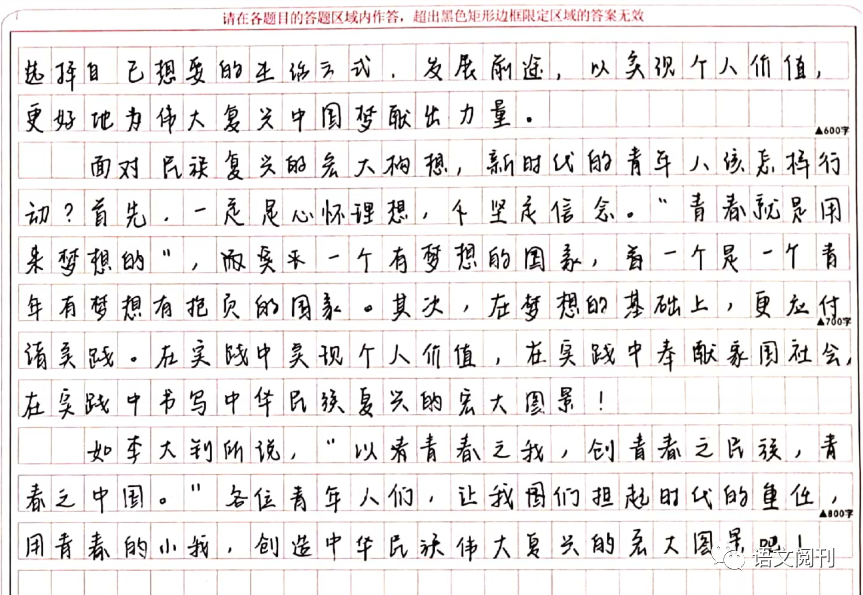 请在各题目的答题区域内作答，超出黑色矩形边框限定区域的答案无效
选择自己想要的生活方式，发展前途，以实现个人价值，
更好地为伟大复兴中国梦献出力量。
▲600字
面对民族复兴的宏大构想，新时代的青年人该怎样行
动？首先，一定是心怀理想，个坚定信念。“青春就是用
来梦想的”，而实乎一个有梦想的国家，首一个是一个青
年有梦想有抱负的国家。其次，在梦想的基础上，更应付
▲700字
请实践。在实践中实现个人价值，在实践中奉献家国社会，
在实践中书写中华民族复兴的宏大图景！
如李大钊所说，“以青青春之我，创青春之民族，青
春之中国。”各位青年人们，让我国们担起时代的重任，
▲800字
用青春的小我，创造中华民族伟大复兴的宏大图景吧！
语文阅刊